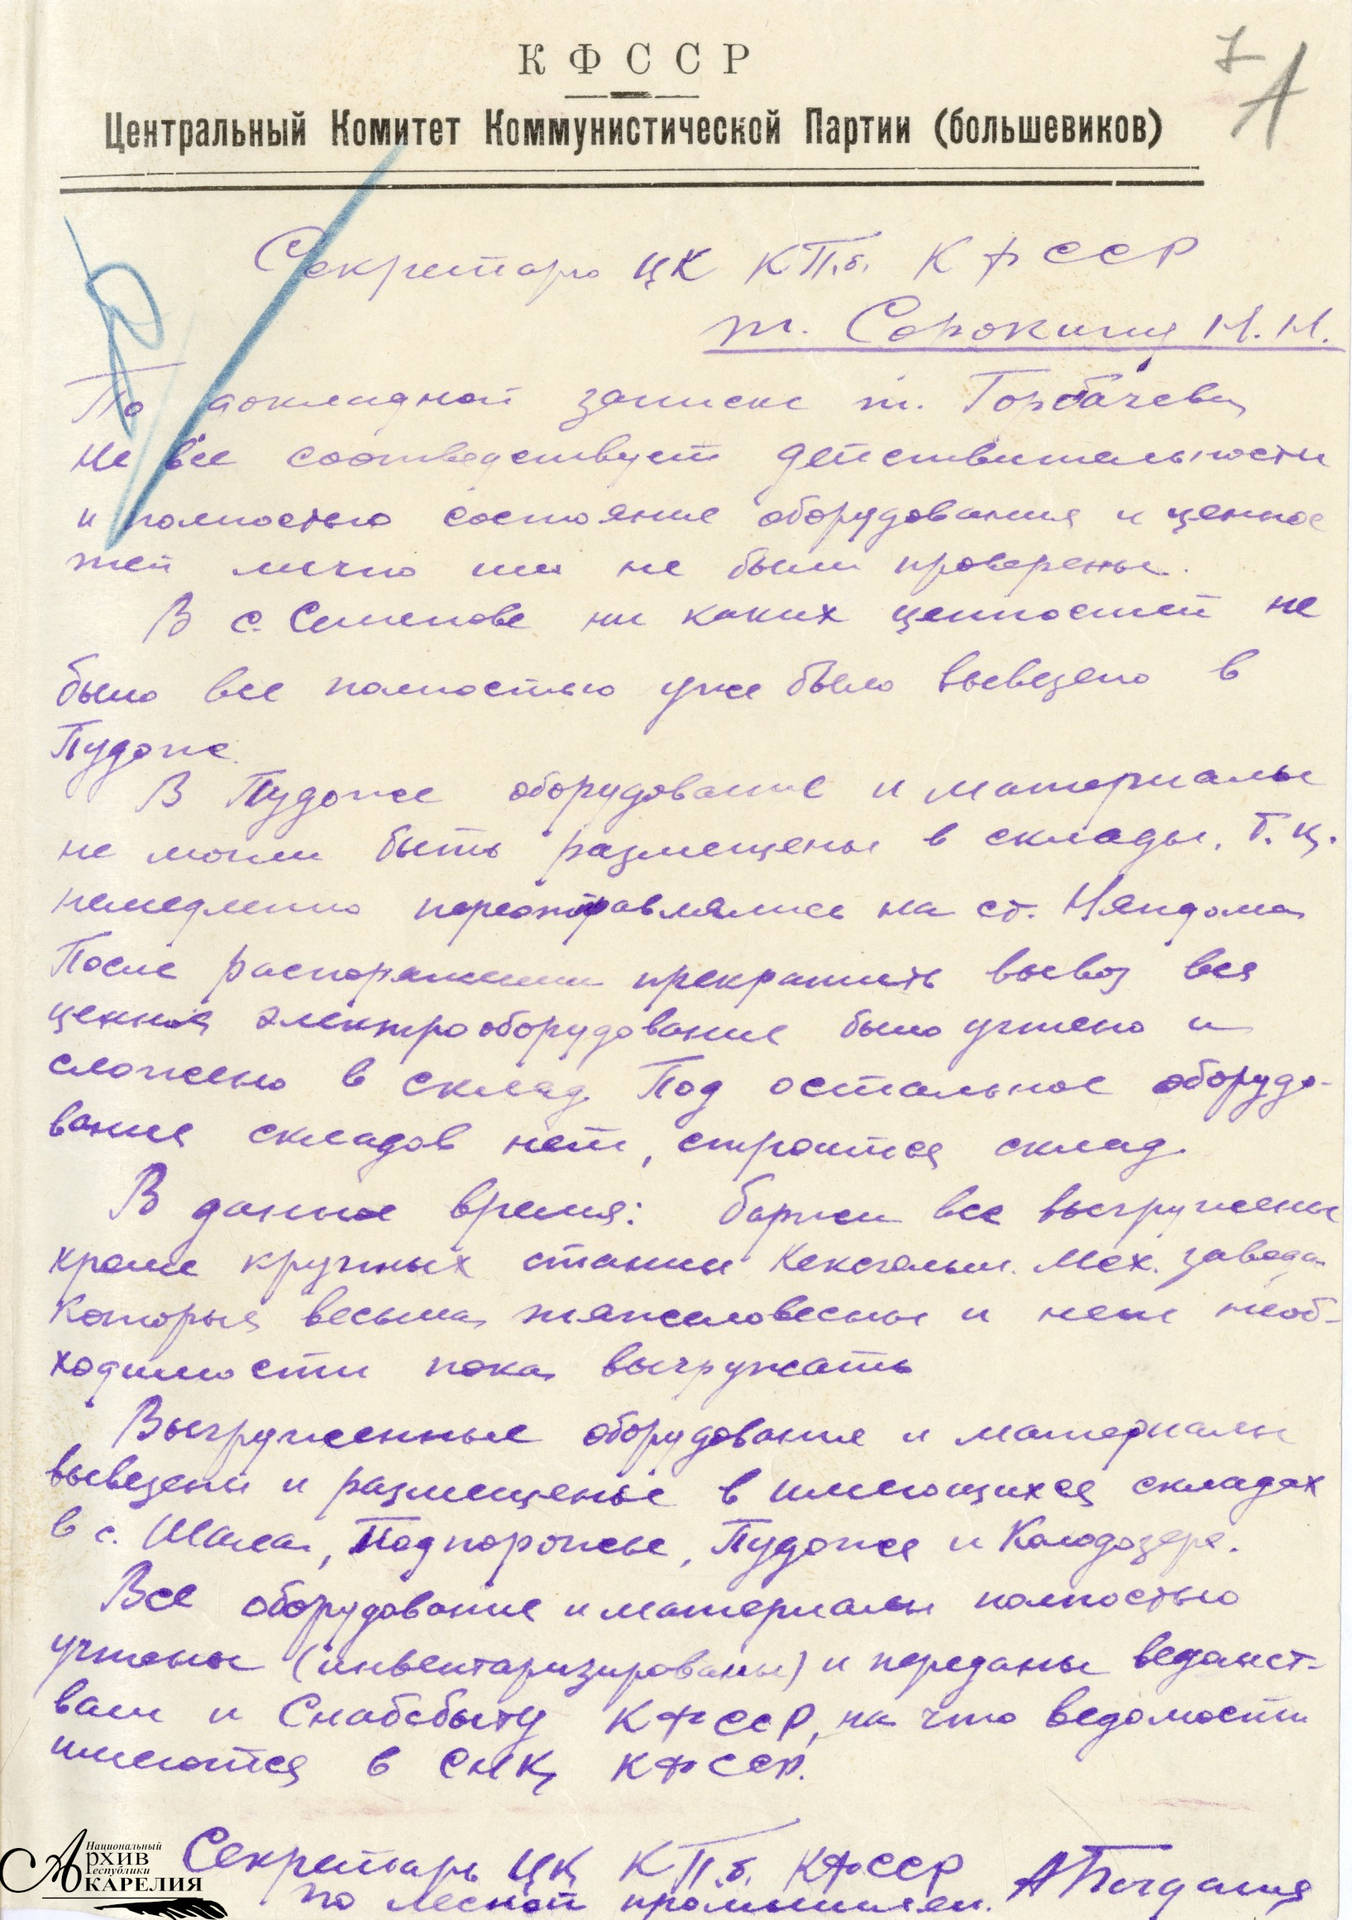 К Ф С С Р
7
Центральный Комитет Коммунистической Партии (большевиков)
Секретарю ЦК КП.б. КФССР
т. Сорокину Н.Н.
По докладной записке т. Горбачева
не все соответствует действительности
и полностью состояние оборудования и ценнос
тей лично им не были проверены.
В с. Семенове ни каких ценностей не
было все полностью уже было вывезено в
Пудож.
В Пудоже оборудование и материалы
не могли быть размещены в склады, т.к.
немедленно переотправлялись на ст. Няндома
После распоряжения прекратить вывоз все
ценное электрооборудование было учтено и
сложено в склад. Под остальное оборудо-
вание складов нет, строится склад.
В данное время: баржи все выгружены
кроме крупных станин Кексгольм. Мех. завода
которые весьма тяжеловесны и нет необ-
ходимости пока выгружать
Выгруженные оборудование и материалы
вывезены и размещены в имеющихся складах
в с. Шала, Подпорожье, Пудоже и Колодозере.
Все оборудование и материалы полностью
учтены (инвентаризированы) и переданы ведомст-
вам и Снабсбыту КФССР, на что ведомости
имеются в СНК КФССР.
Секретарь ЦК КП.б. КФССР
по лесной промышлен.
Национальный
Архив
Республики
Карелия